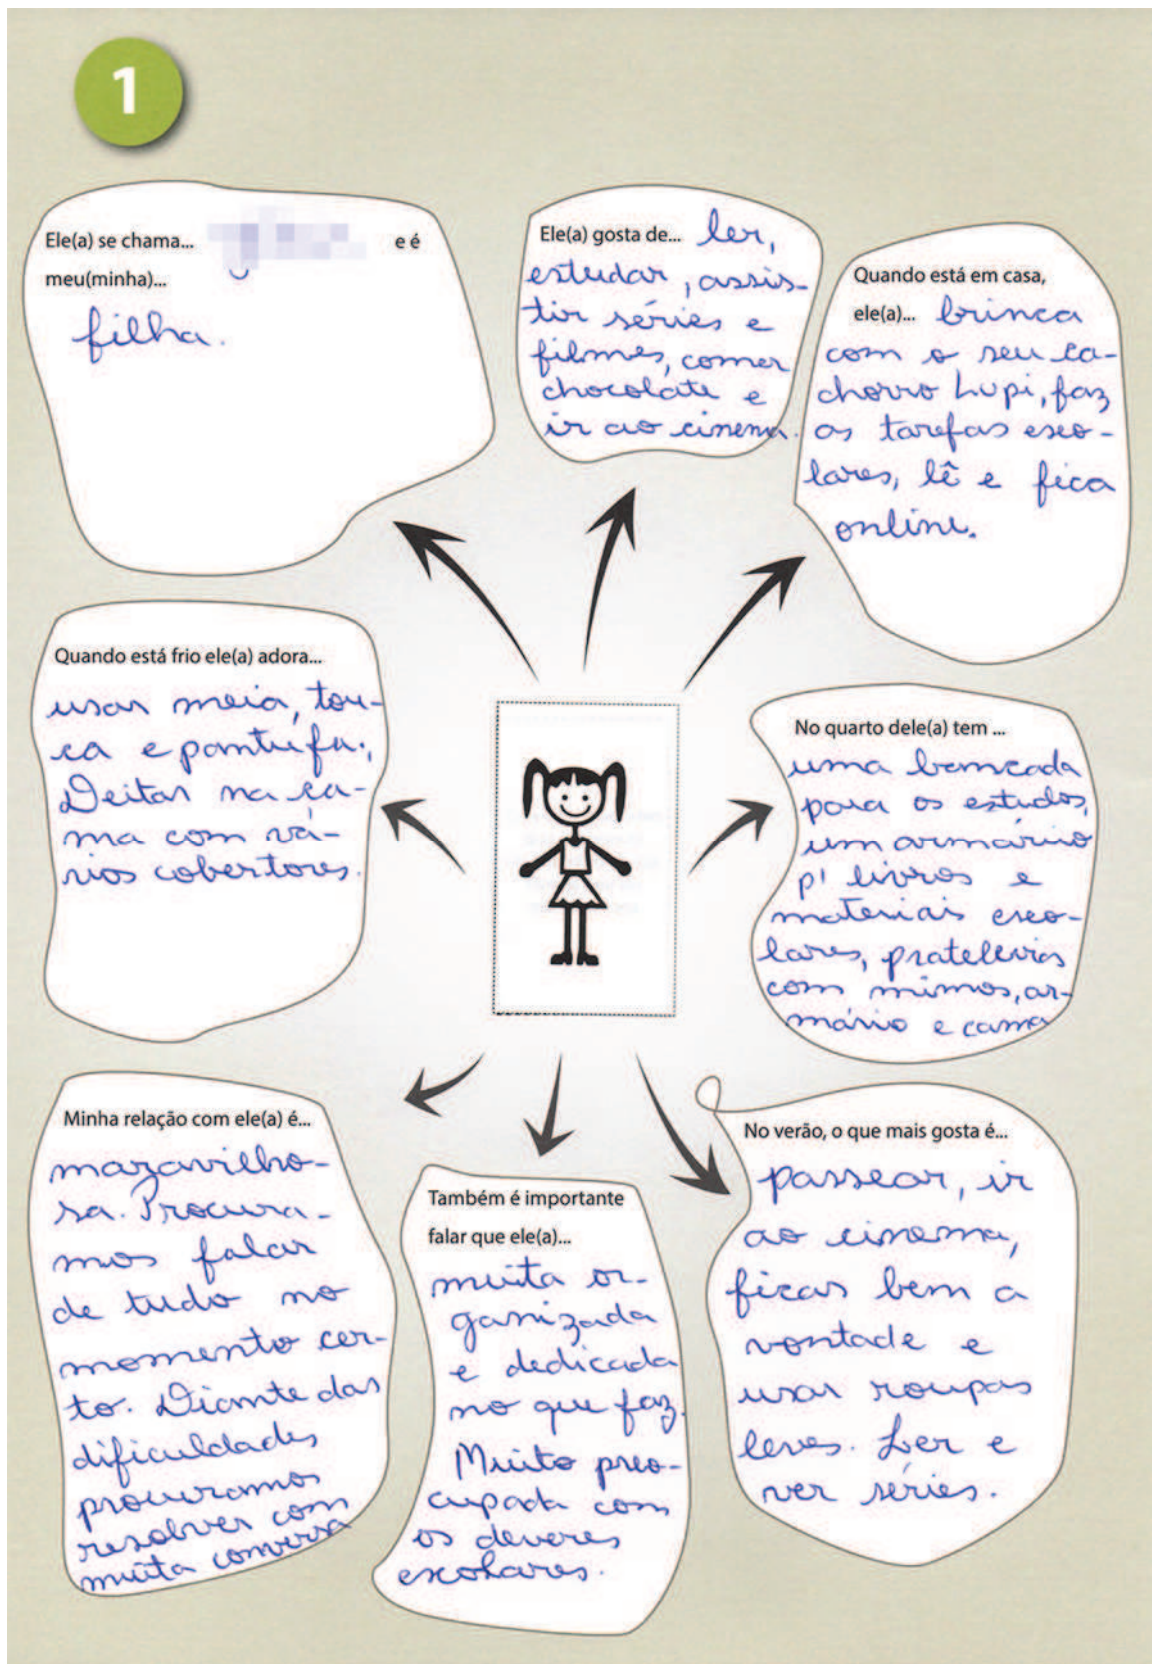 1
Ele(a) se chama... e é
meu(minha)...
filha.
Ele(a) gosta de... ler,
estudar, assis-
tir séries e
filmes, comer
chocolate e
ir ao cinema.
Quando está em casa,
ele(a)... brinca
com o seu ca-
chorro Lupi, faz
as tarefas esco-
lares, lê e fica
online.
Quando está frio ele(a) adora...
usar meia, tou-
ca e pantufa.,
Deitar na ca-
ma com vá-
rios cobertores.
No quarto dele(a) tem ...
uma bancada
para os estudos,
um armário
p/ livros e
materiais esco-
lares, prateleiras
com mimos, ar-
mário e cama
Minha relação com ele(a) é...
maravilho-
sa. Procura-
mos falar
de tudo no
momento cer-
to. Diante das
dificuldades
procuramos
resolver com
muita conversa
Também é importante
falar que ele(a)...
muita or-
ganizada
e dedicada
no que faz.
Muito preo-
cupada com
os deveres
escolares.
No verão, o que mais gosta é...
passear, ir
ao cinema,
ficar bem a
vontade e
usar roupas
leves. Ler e
ver séries.